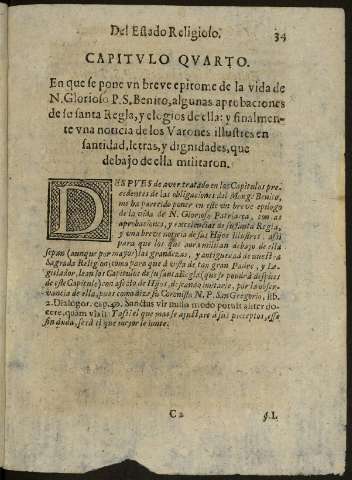 Del Estado Religioso. 34
CAPITVLO QVARTO.
En que se pone vn breve epitome de la vida de
N. Glorioso P. S. Benito, algunas aprobaciones
de su santa Regla, y elogios de ella: y finalmen-
te vna noticia de los Varones illustres en
santidad, letras, y dignidades, que
debajo de ella militaron.
DESPVES de aver tratado en los Capitulos pre-
cedentes de las obligaciones del Monge Benito,
me ha parecido poner en este vn breve epilogo
de la vida de N. Glorioso Patriarca, con las
aprobaciones, y excelencias de su santa Regla,
y una breve noticia de sus Hijos Illustres: assi
para que los que aora militan debajo de ella
sepan (aunque por mayor) las grandezas, y antiguedad de nuestra
Sagrada Religion; como para que à vista de tan gran Padre, y Le-
gislador, lean los Capitulos de su santa Regla (que se pondrà despues
de este Capitulo) con afecto de Hijos, deseando imitarlo, por la obser-
vancia de ella, pues como dize su Coronista N. P. San Gregorio, lib.
2. Dialogor. cap. 36. Sanctus vir nullo modo potuit aliter do-
cere, quam vixit. Y assi el que mas se ajustare à sus preceptos, esse
sin duda, serà el que mejor le imite.
C 2 §. I.